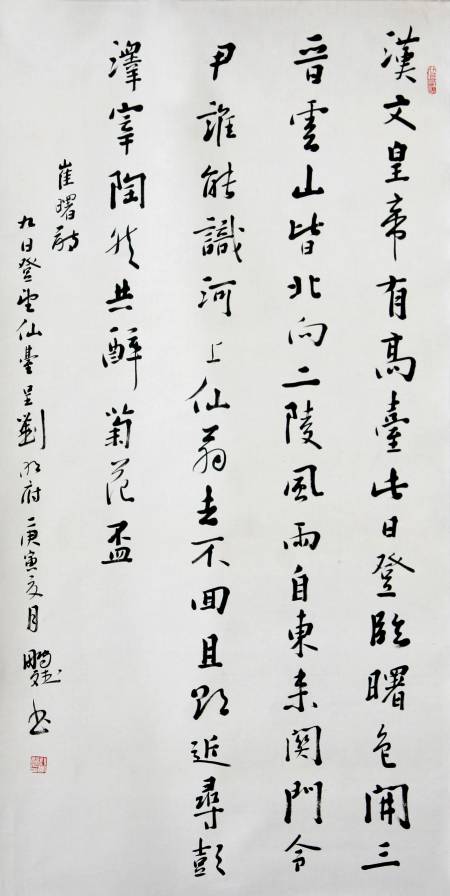 漢文皇帝有高臺此日登臨曙色開三
晉雲山皆北向二陵風雨自東來関門令
尹誰能識河上仙翁去不回且欲近尋彭
澤宰陶然共醉菊花盃
崔曙詩
九日登望仙臺呈劉明府庚寅夏月鵬書